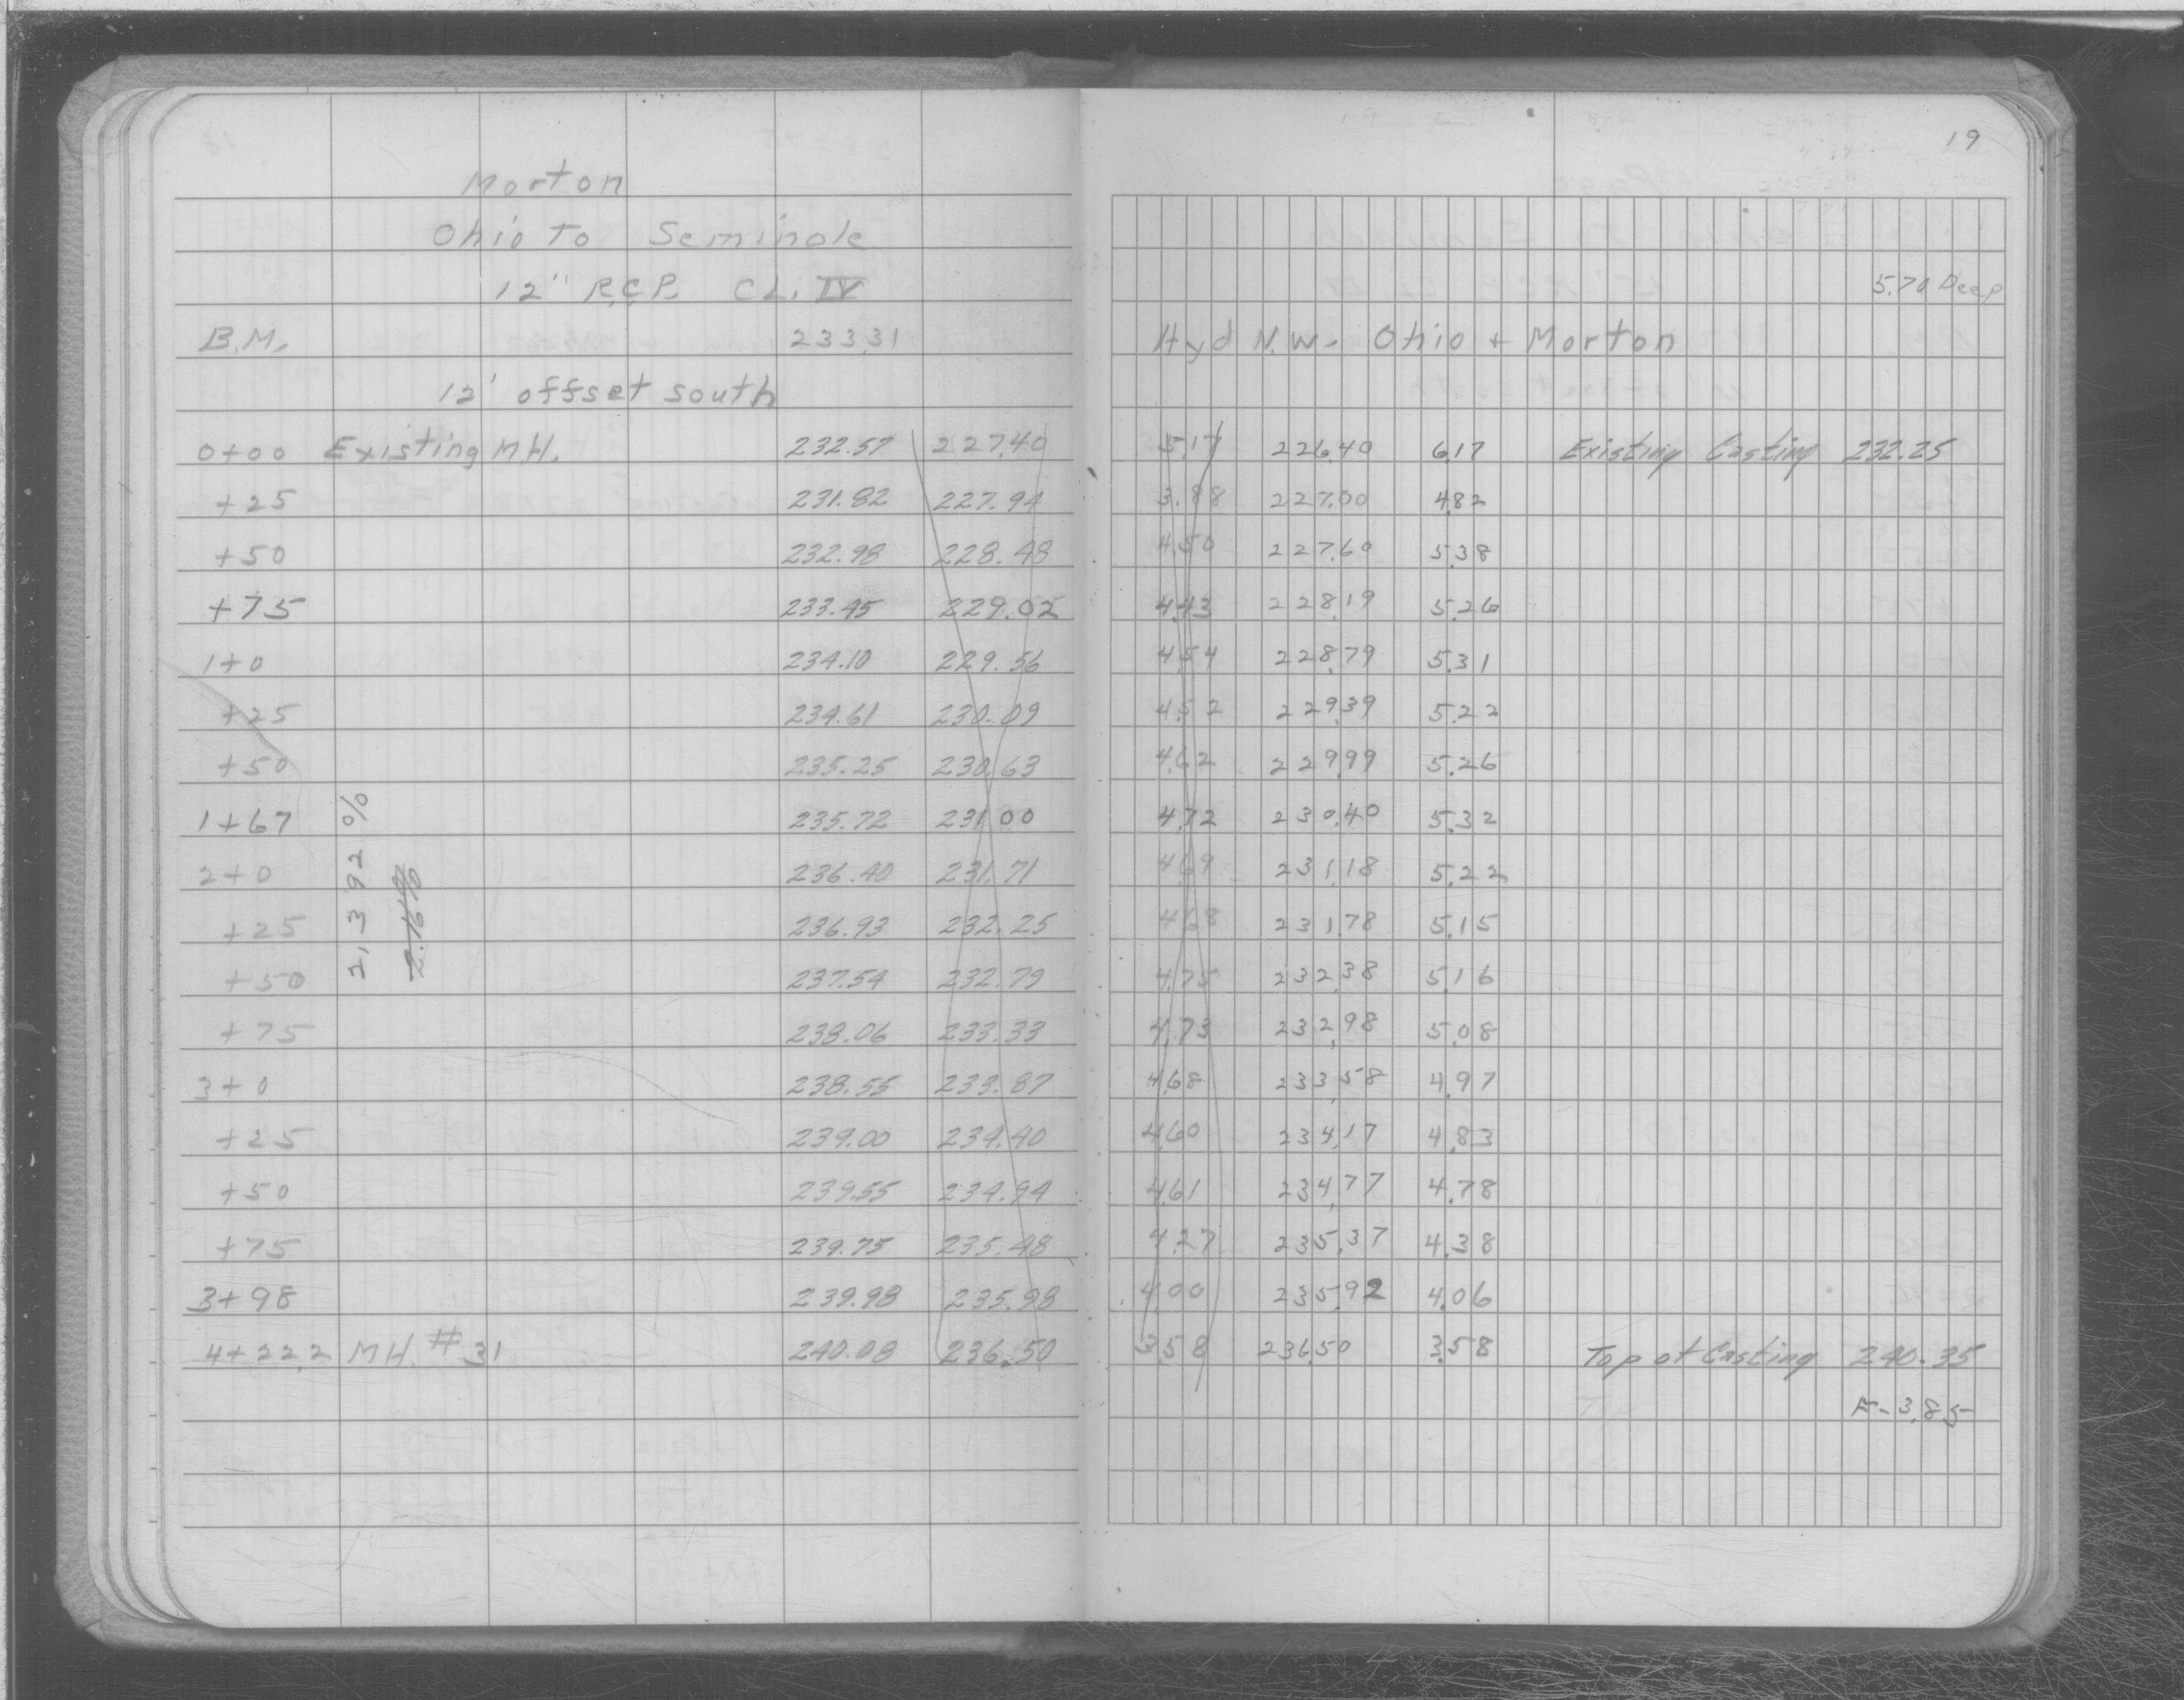 19
Morton
Ohio To Seminole
12" R.C.P. CL. IV
5.70 Deep
B.M. 233.31 Hyd N.W. Ohio + Morton
12' offset south
0+00 Existing M.H. 232.57 227.40 5.17 226.40 6.17 Existing Casting 232.25
+25 231.82 227.94 3.88 227.00 4.82
+50 232.98 228.48 4.50 227.60 5.38
+75 233.45 229.02 4.43 228.19 5.26
1+0 234.10 229.56 4.54 228.79 5.31
+25 234.61 230.09 4.52 229.39 5.22
+50 235.25 230.63 4.62 229.99 5.26
1+67 235.72 231.00 4.72 230.40 5.32
2+0 236.40 231.71 4.69 231.18 5.22
+25 236.93 232.25 4.68 231.78 5.15
+50 237.54 232.79 4.75 232.38 5.16
+75 238.06 233.33 4.73 232.98 5.08
3+0 238.55 233.87 4.68 233.58 4.97
+25 239.00 234.40 4.60 234.17 4.83
+50 239.55 234.94 4.61 234.77 4.78
+75 239.75 235.48 4.27 235.37 4.38
3+98 239.98 235.98 4.00 235.92 4.06
4+22.2 MH. #31 240.08 236.50 3.58 236.50 3.58 Top of Casting 240.35
F-3.85
2.392 %